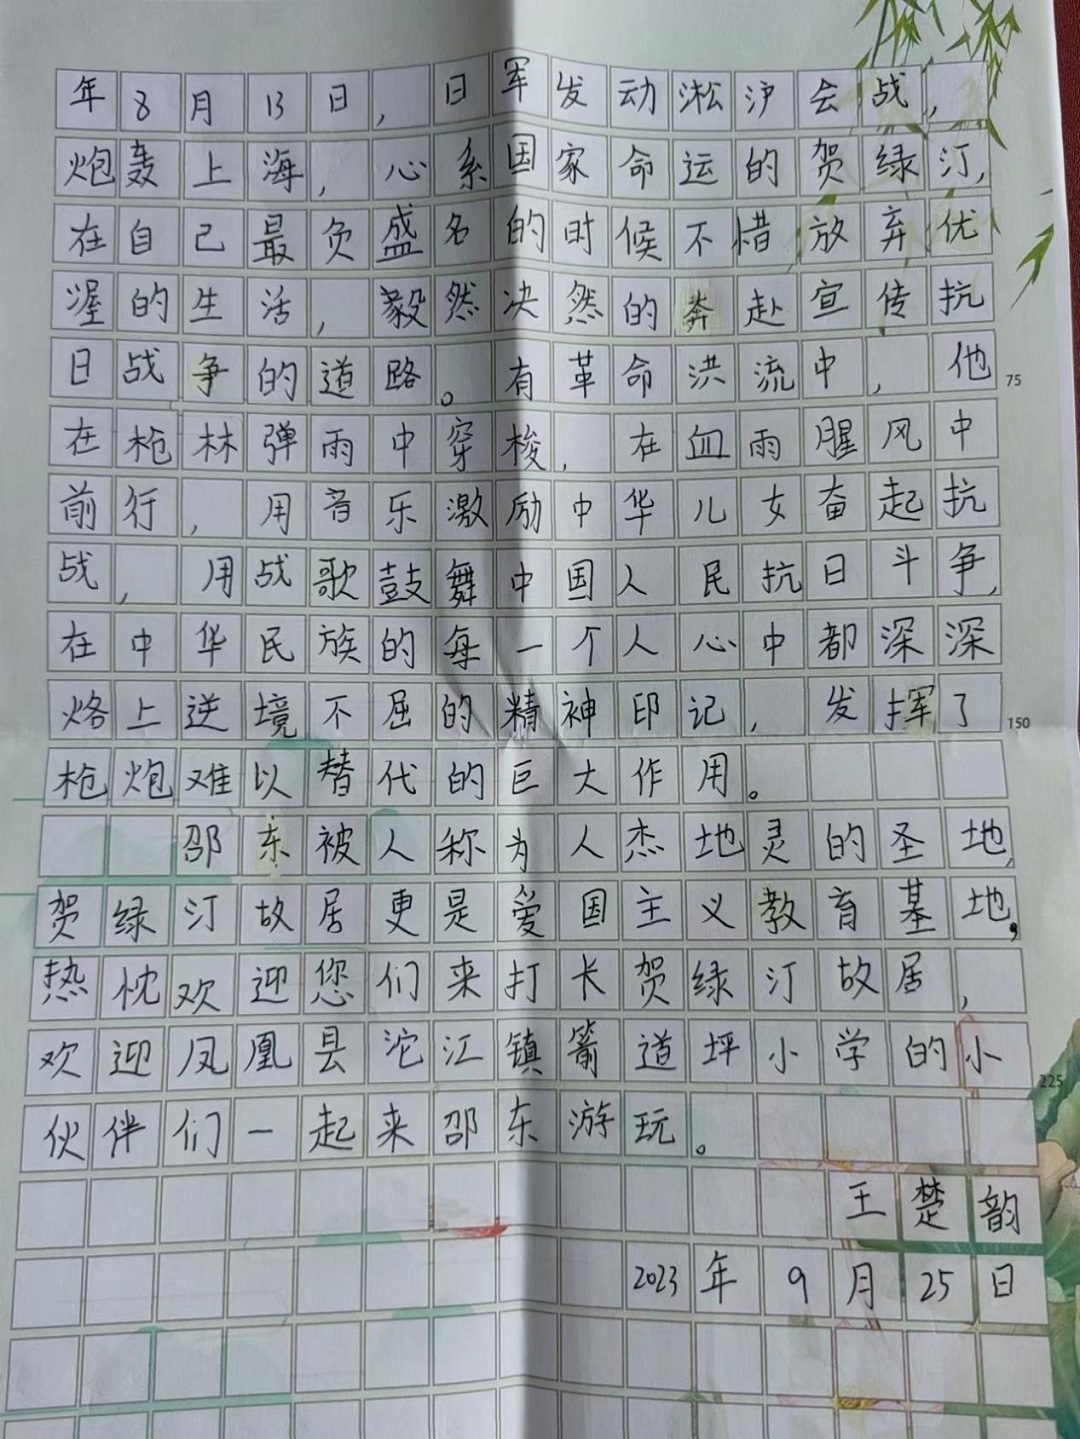 年8月13日，日军发动淞沪会战，
炮轰上海，心系国家命运的贺绿汀，
在自己最负盛名的时候不惜放弃优
渥的生活，毅然决然的奔赴宣传抗
日战争的道路。有革命洪流中，他
75
在枪林弹雨中穿梭，在血雨腥风中
前行，用音乐激励中华儿女奋起抗
战，用战歌鼓舞中国人民抗日斗争，
在中华民族的每一个人心中都深深
烙上逆境不屈的精神印记，发挥了
150
枪炮难以替代的巨大作用。
邵东被人称为人杰地灵的圣地，
贺绿汀故居更是爱国主义教育基地，
热忱欢迎您们来打长贺绿汀故居，
欢迎凤凰县沱江镇箭道坪小学的小
225
伙伴们一起来邵东游玩。
王楚韵
2023年9月25日